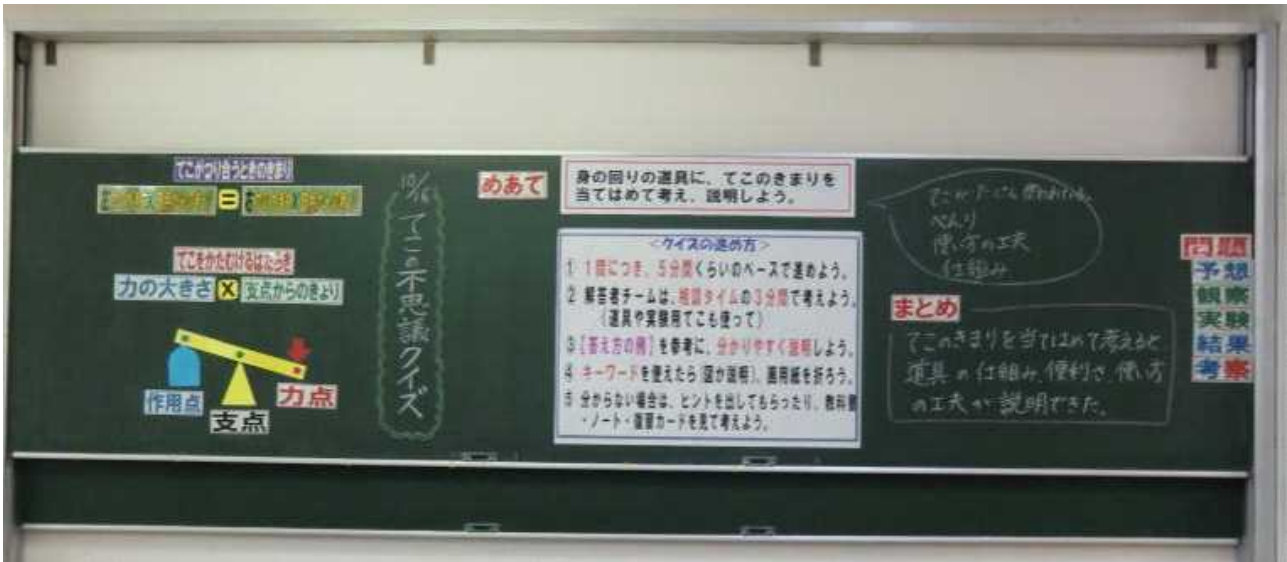 てこがつり合うときのきまり
=
てこをかたむけるはたらき
力の大きさ×支点からのきょり
作用点
支点
力点
てこの不思議クイズ
めあて
身の回りの道具に、てこのきまりを
当てはめて考え、説明しよう。
<クイズの進め方>
1 1問につき、5分間くらいのペースで進めよう。
2 解答者チームは、相談タイムの3分間で考えよう。
(道具や実験用てこも使って)
3【答え方の例】を参考に、分かりやすく説明しよう。
4 キーワードを使えたら(図か説明)、画用紙を折ろう。
5 分からない場合は、ヒントを出してもらったり、教科書
・ノート・復習カードを見て考えよう。
べんり
使い方の工夫
仕組み
まとめ
てこのきまりを当てはめて考えると
道具の仕組み、便利さ、使い方
の工夫が説明できた。
問題
予想
観察
実験
結果
考察